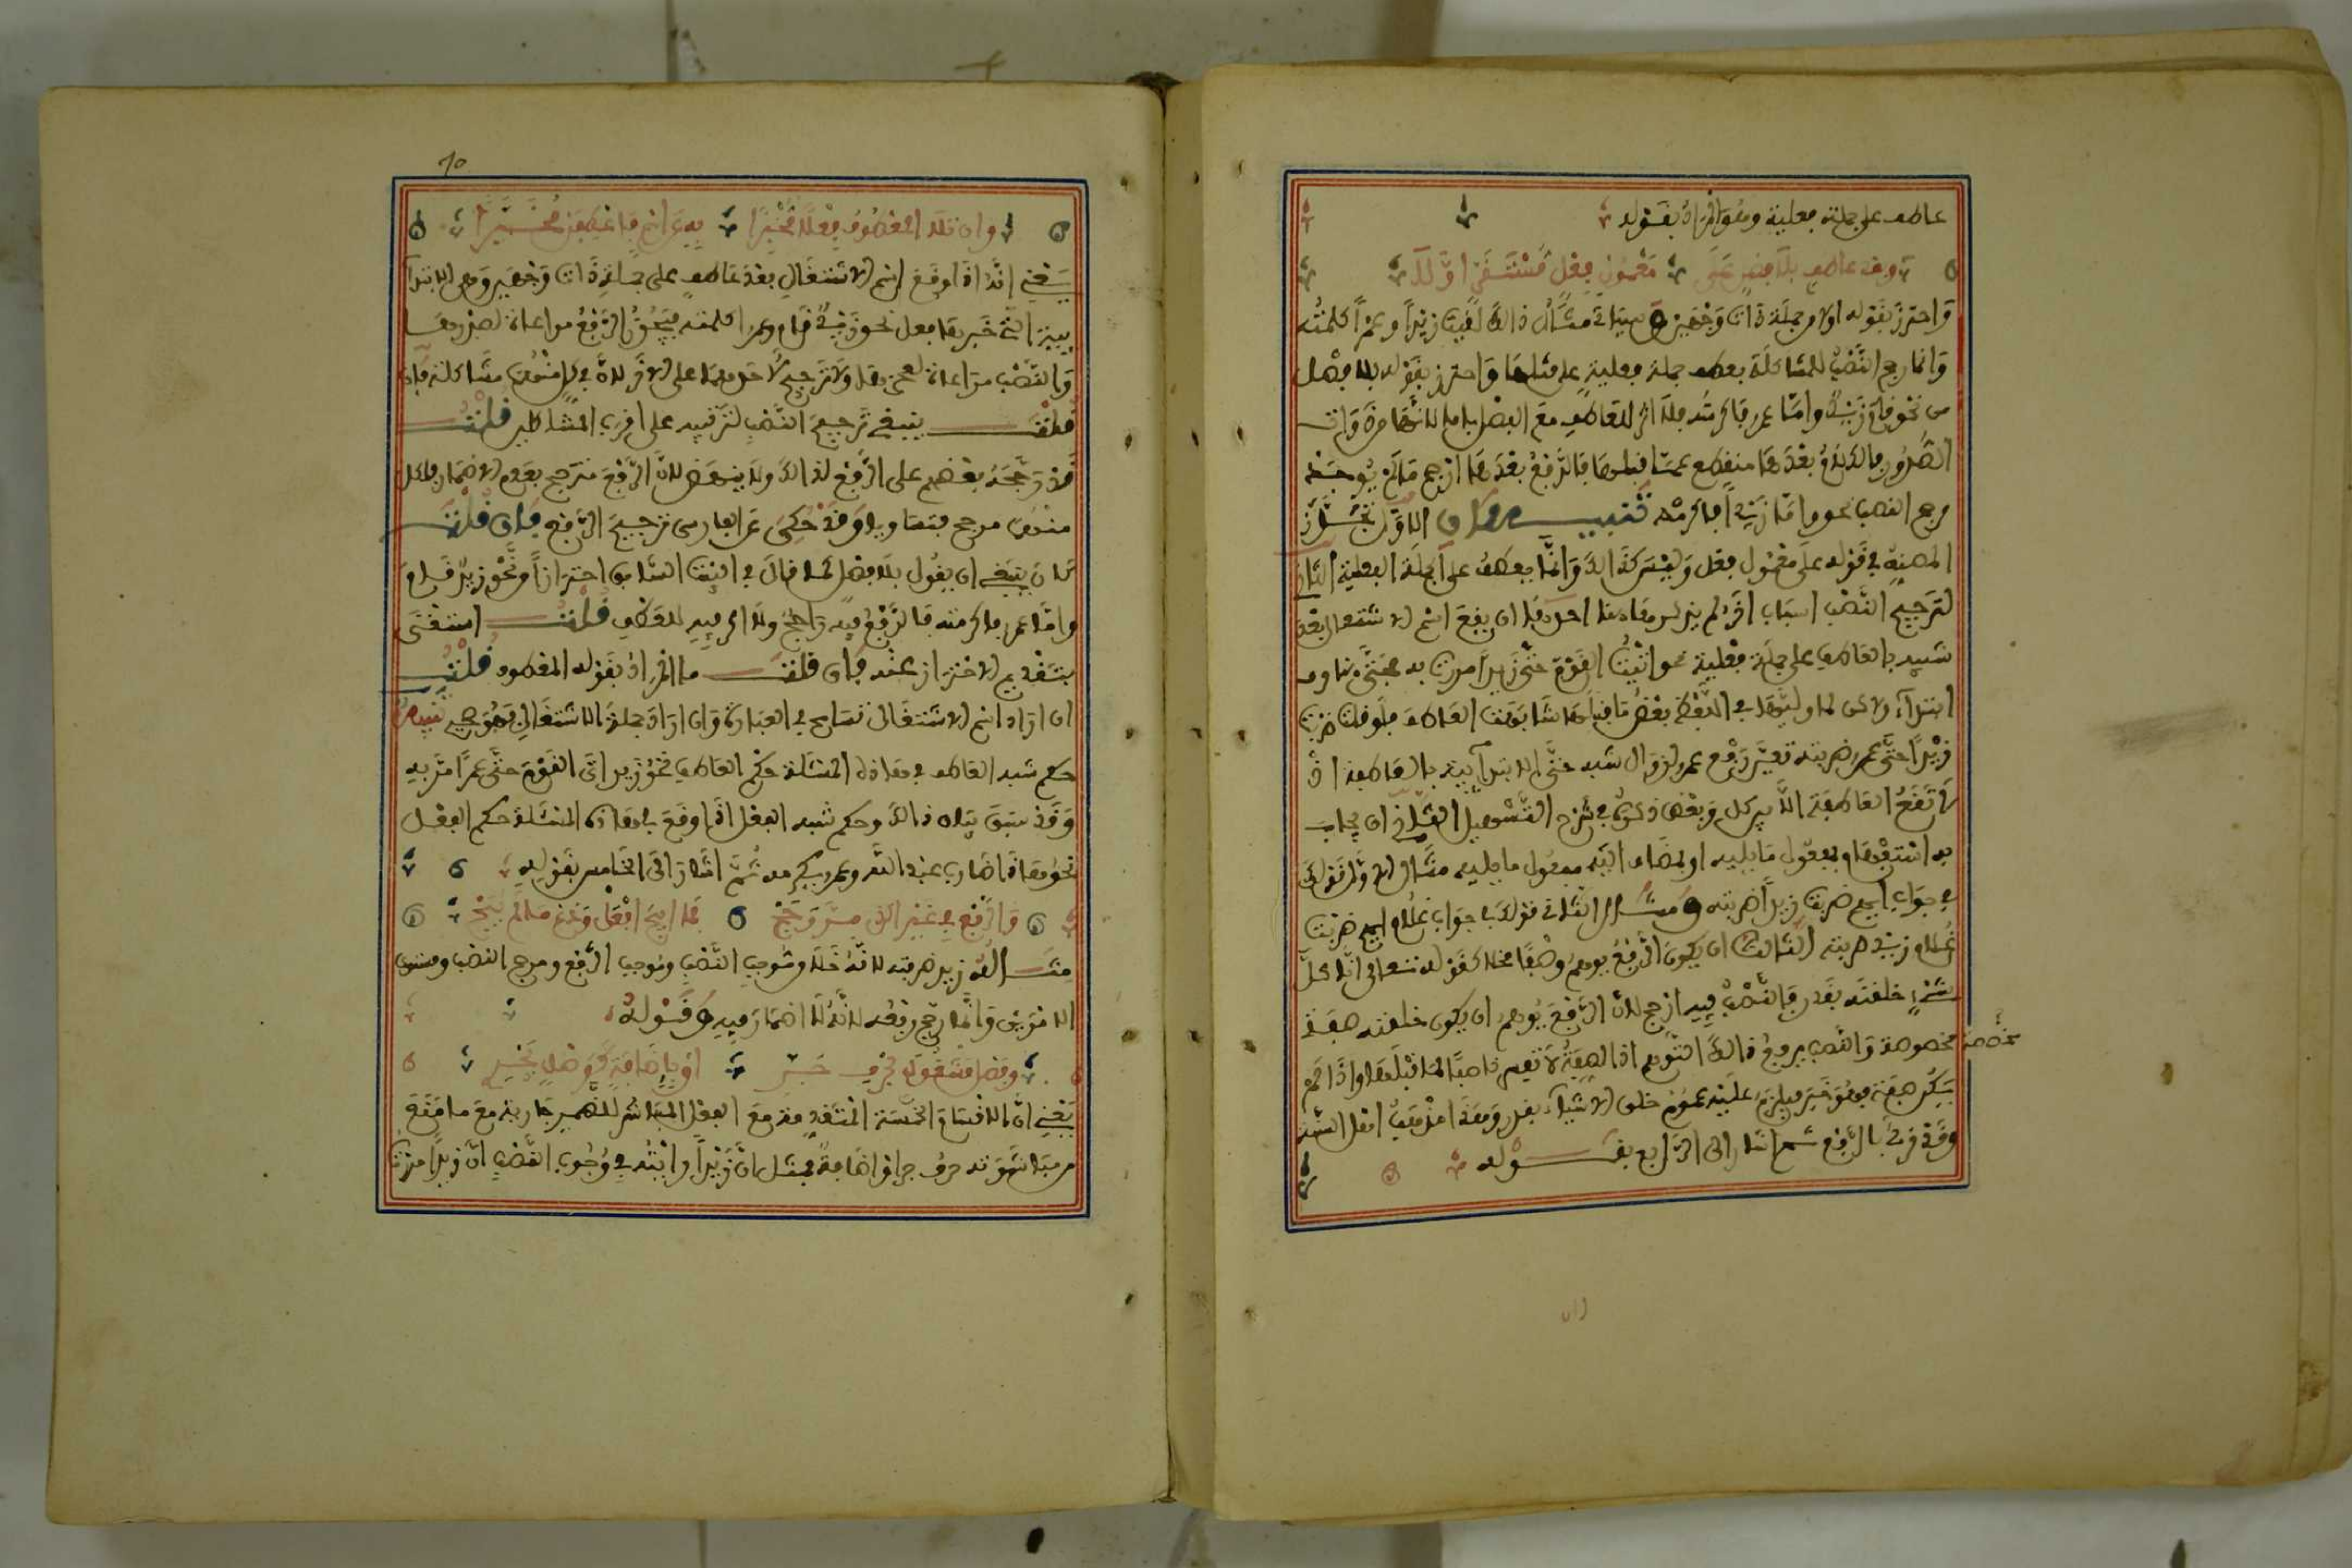 عاطف على جملة فعلية وهو المراد بقوله
وبعد عاطف بلا فصل على معمول فعل مستقر اولا
واحترز بقوله اولا من جملة ذات وجهين وسياتي مثال ذلك لقيت زيدا وعمرا كلمته
وانما رجح النصب للمشاكلة بعطف جملة فعلية على مثلها واحترز بقوله بلا فصل
من نحو قام زيد واما عمر فاكرمته فلا اثر للعاطف مع الفصل باما لانها من ادوات
الصدور فالكلام بعدها منقطع عما قبلها فالرفع بعدها ارجح ما لم يوجد
مرجح النصب نحو واما زيدا فاكرمه تنبيهان الاول تجوز
المصنف في قوله على معمول فعل وليس كذلك وانما يعطف على الجملة الفعلية الثاني
لترجيح النصب اسباب اخر لم يذكرها هنا احدها ان يقع اسم الاشتغال بعد
شبيه بالعاطف على جملة فعلية نحو اتيت القوم حتى زيدا مررت به فحتى هنا حرف
ابتداء ولكن لما وليها في اللفظ بعض ما قبلها شابهت العاطف فلو قلت ضربت
زيدا حتى عمر ضربته تعين رفع عمر لزوال شبه حتى الابتدائية بالعاطفة اذ
لا تقع العاطفة الا بين كل وبعض ذكره في شرح التسهيل الثاني ان يجاب
به استفهام بمفعول ما يليه او بمضاف اليه مفعول ما يليه مثال الاول قولك
في جواب ايهم ضربت زيدا ضربته ومثال الثاني قولك في جواب غلام ايهم ضربت
غلام زيد ضربته الثالث ان يكون الرفع يوهم وصفا مخلا كقوله تعالى انا كل
شيء خلقنه بقدر فالنصب فيه ارجح لان الرفع يوهم ان يكون خلقنه صفة
مخصصة
مخصوصة والنصب يرفع ذلك التوهم اذ الصفة لا تفسر ناصبا لما قبلها واذا لم
يكن صفة فهو خبر فيلزم عليه عموم خلق الاشياء بقدر وهذا مذهب اهل السنة
وقد قرئ بالرفع ثم اشار الى الرابع بقوله
وان تلا المعطوف فعلا مخبرا به عن اسم فاعطفن مخيرا
يعني انه اذا وقع اسم الاشتغال بعد عاطف على جملة ذات وجهين وهي الابتدا
ئية التي خبرها فعل نحو زيد قام وعمر كلمته فيجوز الرفع مراعاة لصدرها
والنصب مراعاة لعجزها ولا ترجيح لاحدهما على الاخر لان في كل منهما مشاكلة فان
قلت ينبغي ترجيح النصب لترتبه على اقرب المشاكلين قلت
قد رجحه بعضهم على الرفع لذلك ولا ينهض لان الرفع مترجح بعدم الاضمار فلكل
منهما مرجح فتساويا وقد حكي عن الفارسي ترجيح الرفع فان قلت
كان ينبغي ان يقول بلا فصل كما قال في البيت السابق احترازا من نحو زيد قام
واما عمر فاكرمته فالرفع فيه راجح ولا اثر فيه للعطف قلت استغنى
بتقديم الاحتراز عنه فان قلت ما المراد بقوله المعطوف قلت
ان اراد اسم الاشتغال تسامح في العبارة وان اراد جملة الاشتغال فهو صحيح تنبيه
حكم شبه العاطف في هذه المسئلة حكم العاطف نحو زيد اتى القوم حتى عمرا مر به
وقد سبق بيان ذلك وحكم شبه الفعل اذا وقع في هذه المسئلة حكم الفعل
نحو هذا ضارب عبد الله وعمر يكرمه ثم اشار الى الخامس بقوله
والرفع في غير الذي مر رجح فما ابيح افعل ودع ما لم يبح
مثاله زيد ضربته لانه خلا من موجب النصب وموجب الرفع ومرجح النصب ومستوي
الامرين وانما رجح رفعه لانه لا اضمار فيه وقوله
وفصل مشغول بحرف جر او باضافة كوصل يجري
يعني ان الاقسام الخمسة المتقدمة مع الفعل المباشر للضمير جارية مع ما منع
من مباشرته حرف جر او اضافة فمثل ان زيدا رايته في وجوب النصب ان زيدا مررت